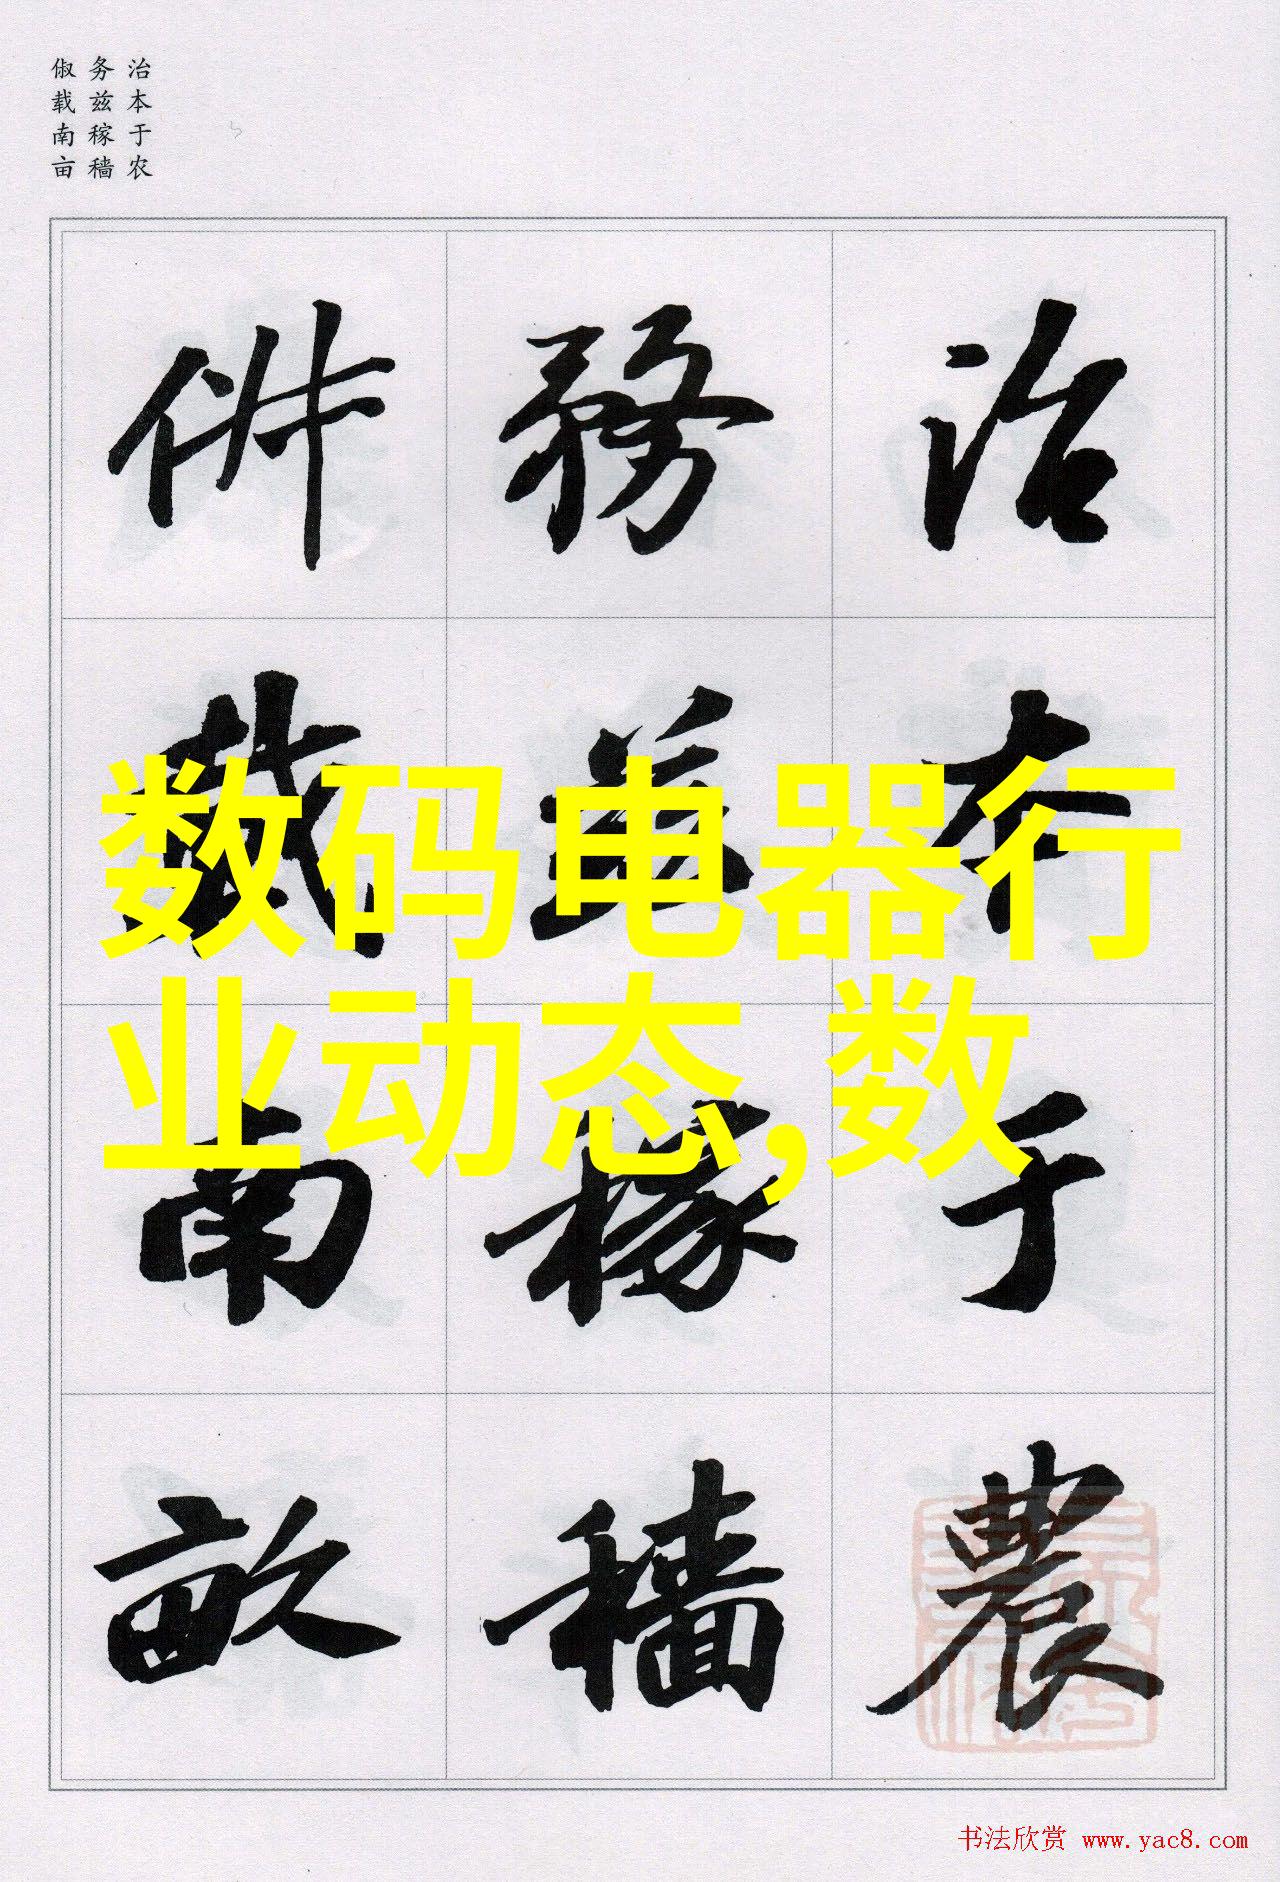 治本于农
务兹稼穑
俶载南亩
治本于農
務茲稼穡
俶載南畝
数码电器行
业动态,数
书法欣赏 www.yac8.com